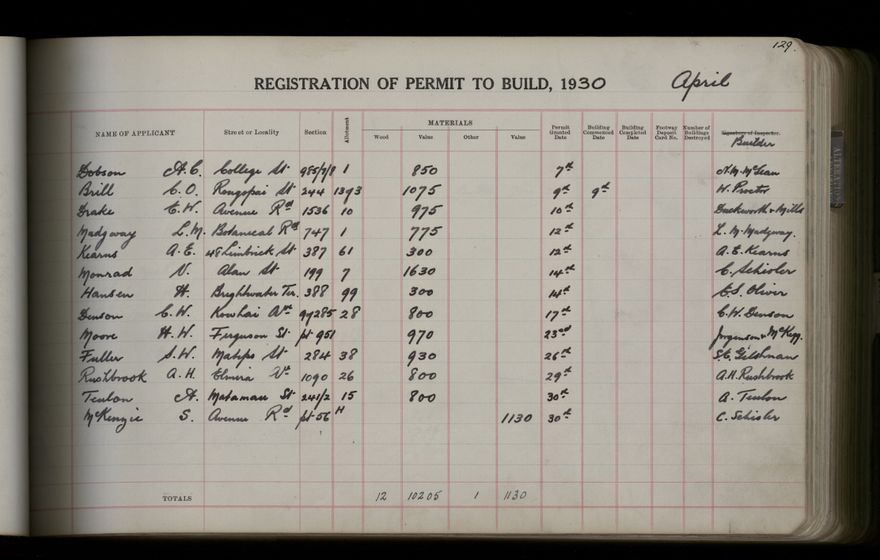 129.
REGISTRATION OF PERMIT TO BUILD, 1930 April
NAME OF APPLICANT Street or Locality Section Allotment MATERIALS Wood Value Other Value Permit Granted Date Building Commenced Date Building Completed Date Footway Deposit Card No. Number of Buildings Destroyed Signature of Inspector. Builder
Dobson A.C. College St 985/7/8 1 850 7th A.M. McLean
Brill C.O. Rongopai St 244 1393 1075 9th 9th W. Proctor
Drake E.W. Avenue Rd 1536 10 975 10th Duckworth & Mills
Madgway L.M. Botanical Rd 747 1 775 12th L. M. Madgway.
Kearns A.E. 48 Limbrick St 387 61 300 12th A.E. Kearns
Monrad V. Alan St 199 7 1630 14th C. Schisler
Hansen H. Brightwater Ter. 388 99 300 14th E.S. Oliver
Denson C.W. Kowhai St 285 28 800 17th C.W. Denson
Moore H.W. Ferguson St pt 951 970 23rd Jorgenson &
Fuller S.W. Matipo St 284 38 930 26th
Rushbrook A.H. Elmira 1090 26 800 29th A.H. Rushbrook
Teulon A. Matamau St 241/2 15 800 30th A. Teulon
McKenzie S. Avenue Rd pt 56 H 1130 30th C. Schisler
TOTALS 12 10205 1 1130
ALTERATION